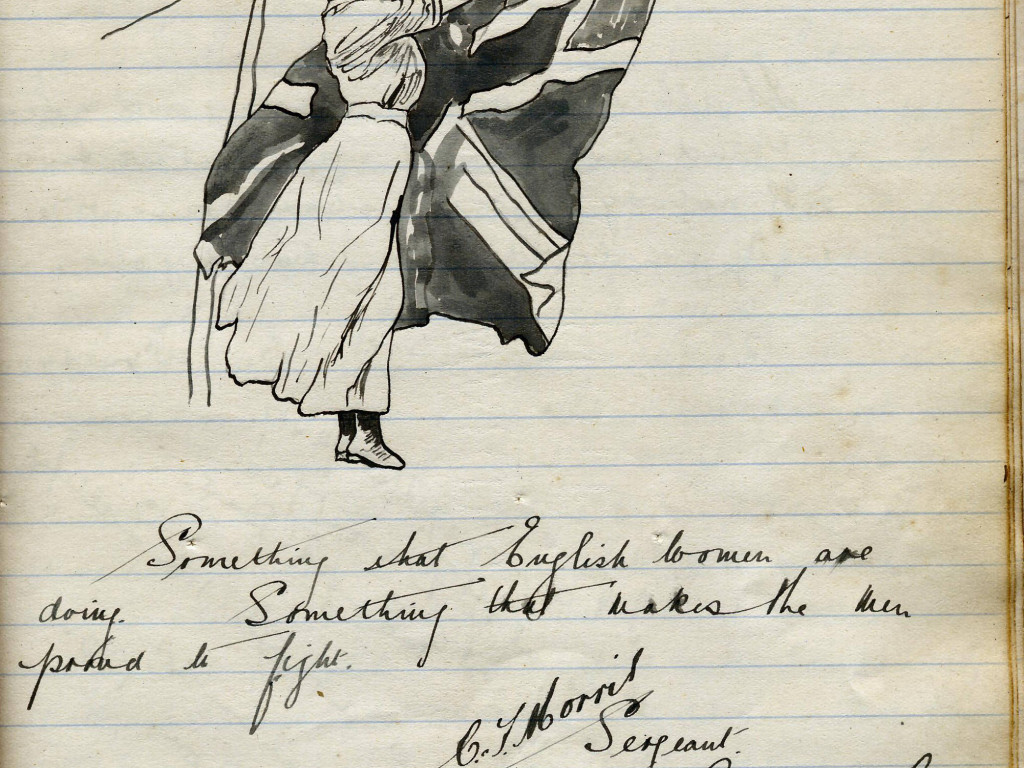 Something that English women are
doing. Something that makes the men
proud to fight.
C. T. Morris
Sergeant.